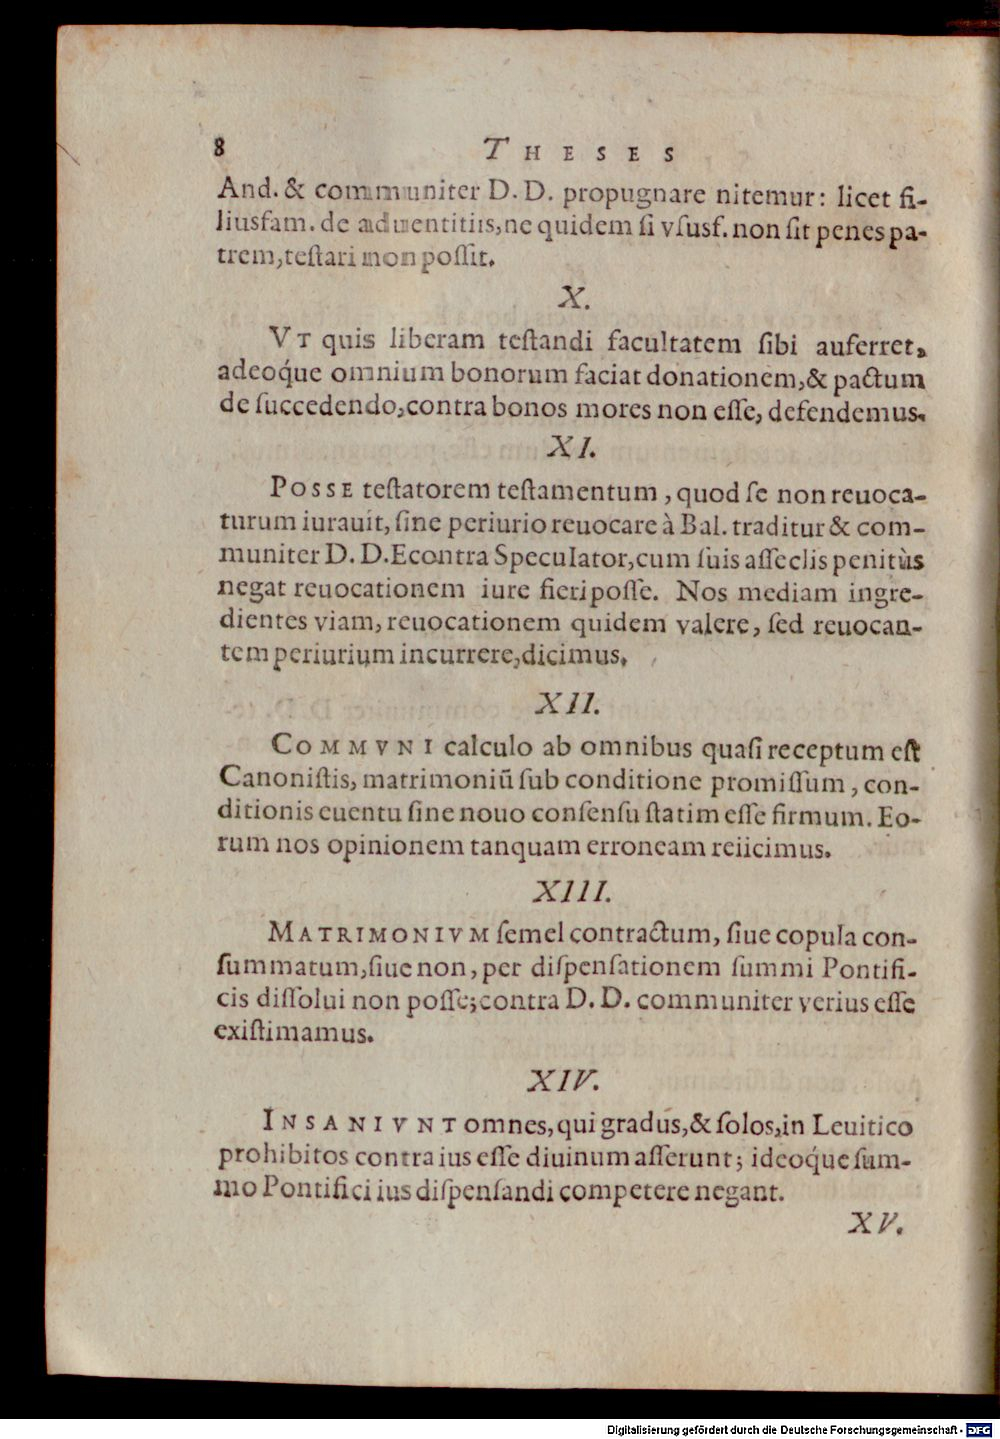 8 THESES
And. & communiter D. D. propugnare nitemur: licet fi-
liusfam. de aduentitiis, ne quidem si vſusf. non ſit penes pa-
trem, teſtari non poſſit.
X.
VT quis liberam teſtandi facultatem ſibi auferret,
adeoq́ue omnium bonorum faciat donationem, & pactum
de ſuccedendo, contra bonos mores non eſſe, defendemus.
XI.
POSSE teſtatorem teſtamentum, quod ſe non reuoca-
turum iurauit, ſine periurio reuocare à Bal. traditur & com-
muniter D. D. Econtra Speculator, cum ſuis aſſeclis penitùs
negat reuocationem iure fieri poſſe. Nos mediam ingre-
dientes viam, reuocationem quidem valere, ſed reuocan-
tem periurium incurrere, dicimus.
XII.
COMMVNI calculo ab omnibus quaſi receptum eſt
Canoniſtis, matrimoniū ſub conditione promiſſum, con-
ditionis euentu ſine nouo conſenſu ſtatim eſſe firmum. Eo-
rum nos opinionem tanquam erroneam reiicimus.
XIII.
MATRIMONIVM ſemel contractum, ſiue copula con-
ſummatum, ſiue non, per diſpenſationem ſummi Pontifi-
cis diſſolui non poſſe; contra D. D. communiter verius eſſe
exiſtimamus.
XIV.
INSANIVNT omnes, qui gradus, & ſolos, in Leuitico
prohibitos contra ius eſſe diuinum aſſerunt; ideoq́ue ſum-
mo Pontifici ius diſpenſandi competere negant.
XV.
Digitalisierung gefördert durch die Deutsche Forschungsgemeinschaft - DFG